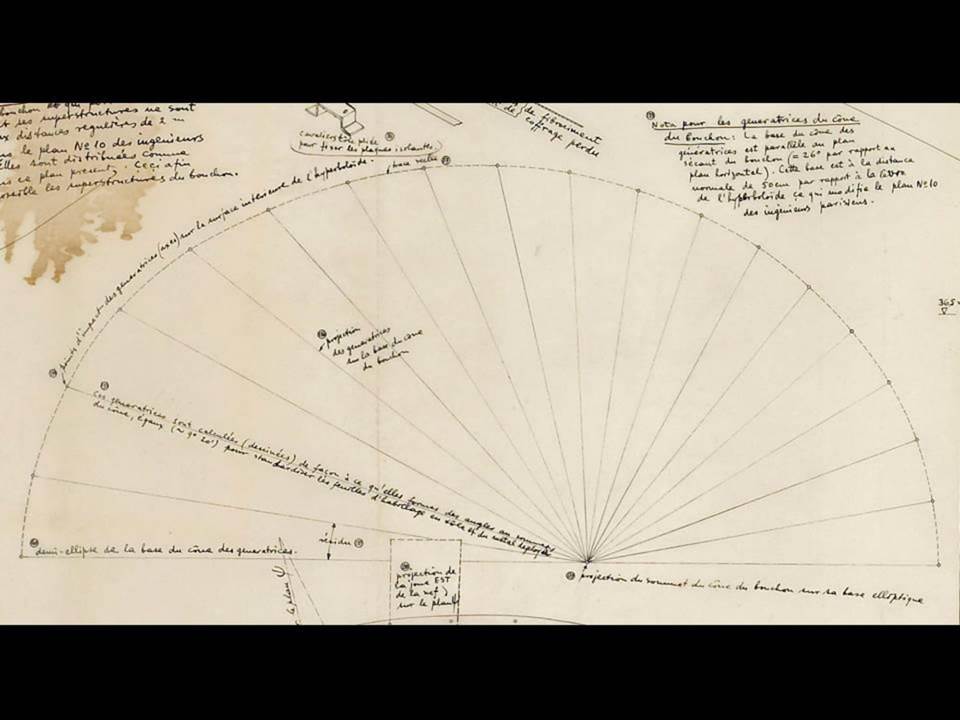 bouchon et qui
et ses superstructures ne sont
distances regulières de 2 m
le plan Nº 10 des ingenieurs
Elles sont distribuées comme
ce plan present, Ceci afin
possible les superstructures du bouchon.
cavaliers
pour fixer les plaques isolantes
de fibrociment
coffrage perdu
Nota pour les generatrices du cône
du Bouchon: La base du cône des
génératrices est parallèle au plan
sécant du bouchon (= 26° par rapport au
plan horizontal). Cette base est à la distance
normale de 50cm par rapport à la
de l'hyperboloïde ce qui modifie le plan Nº10
des ingénieurs parisiens.
points d'impact des generatrices (axes) sur la surface intérieure de l'hyperboloïde.
base
365
projection
des generatrices
sur la base du cône
du bouchon
Ces generatrices sont calculées (dessinées) de façon à ce qu'elles formes des angles au sommet
du cône, égaux (≈ 9° 20') pour standardiser les feuilles d'habillage en tôle et du métal deployé
demi-ellipse de la base du cône des generatrices.
résidu
projection de
la joue EST
de la nef
sur le plan
le plan
projection du sommet du cône du bouchon sur sa base elliptique